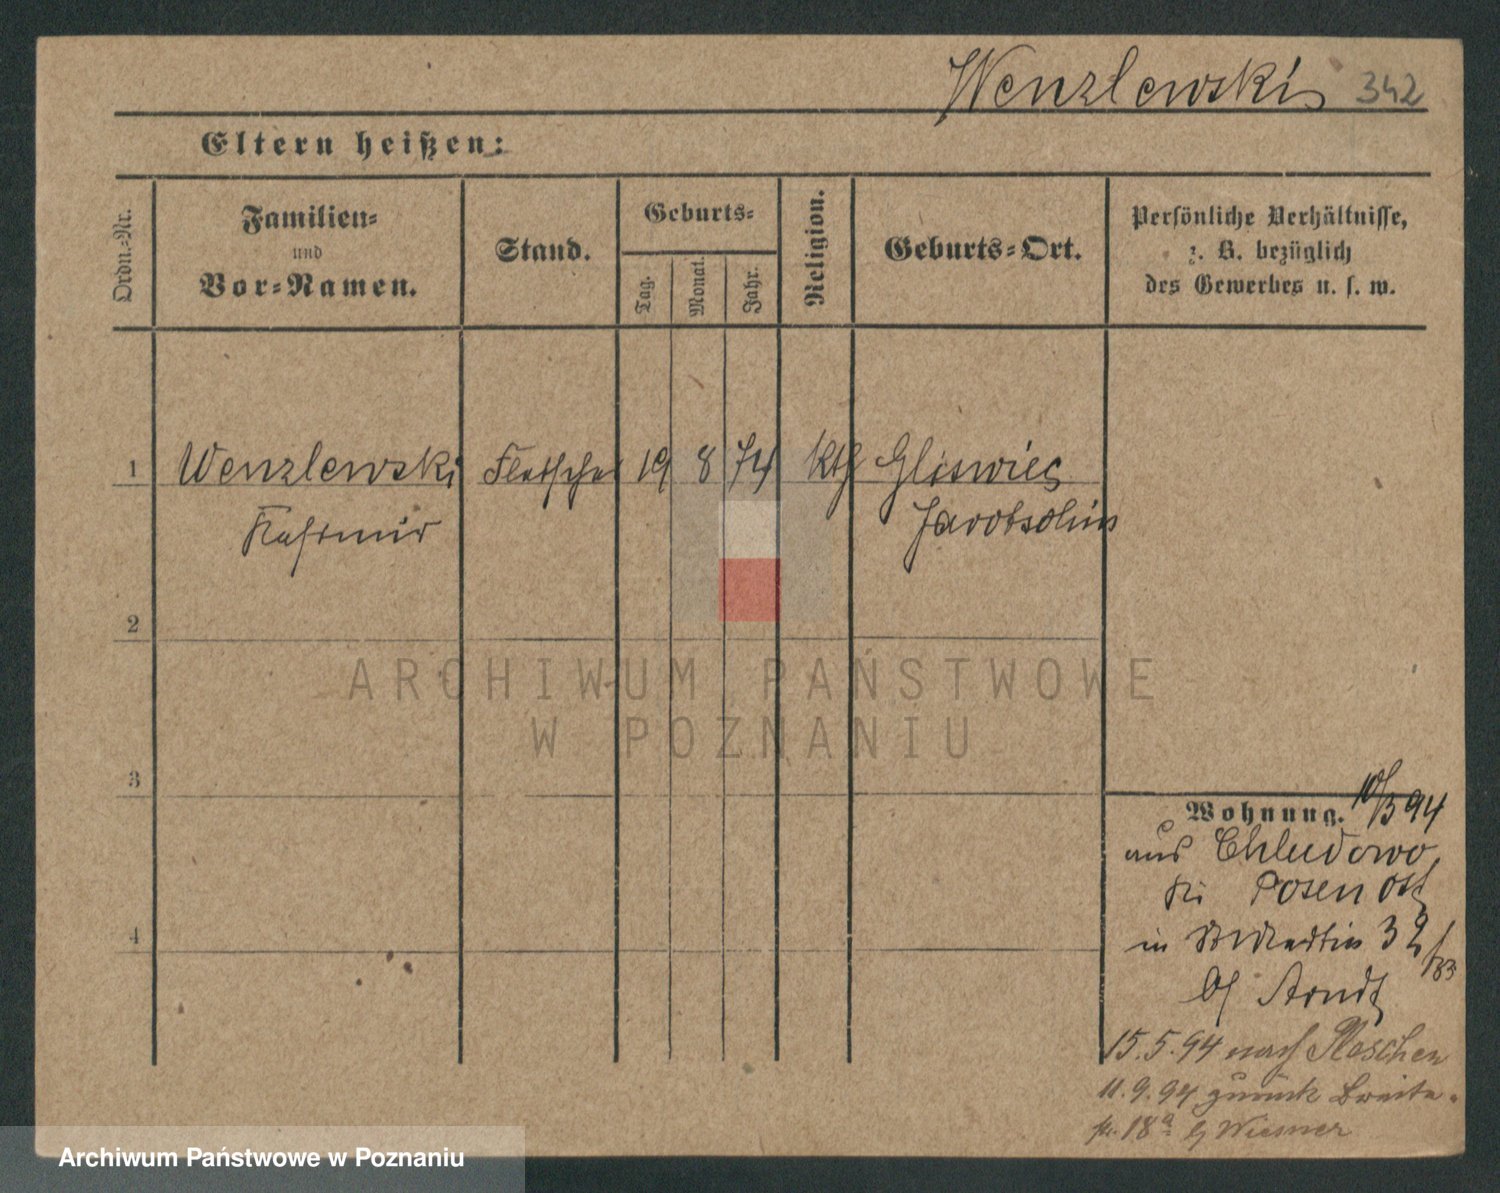 Wenzlewski 342
Eltern heißen:
Ordn.-Nr.
Familien-
und
Vor-Namen.
Stand.
Geburts-
Tag.
Monat.
Jahr.
Religion.
Geburts-Ort.
Persönliche Verhältnisse,
z. B. bezüglich
des Gewerbes u. s. w.
1 Wenzlewski Fleischer 19 8 74 kth Gliswiec
Kasimir
2
3
4
ARCHIWUM PAŃSTWOWE
W POZNANIU
Wohnung. 10/3 94
aus Chludowo
Posen Ost
in St Martin 32
bei Arndt
15.5.94 nach Pleschen
11.9.94 zurück Breite-
str. 18a b/ Wiesner
Archiwum Państwowe w Poznaniu